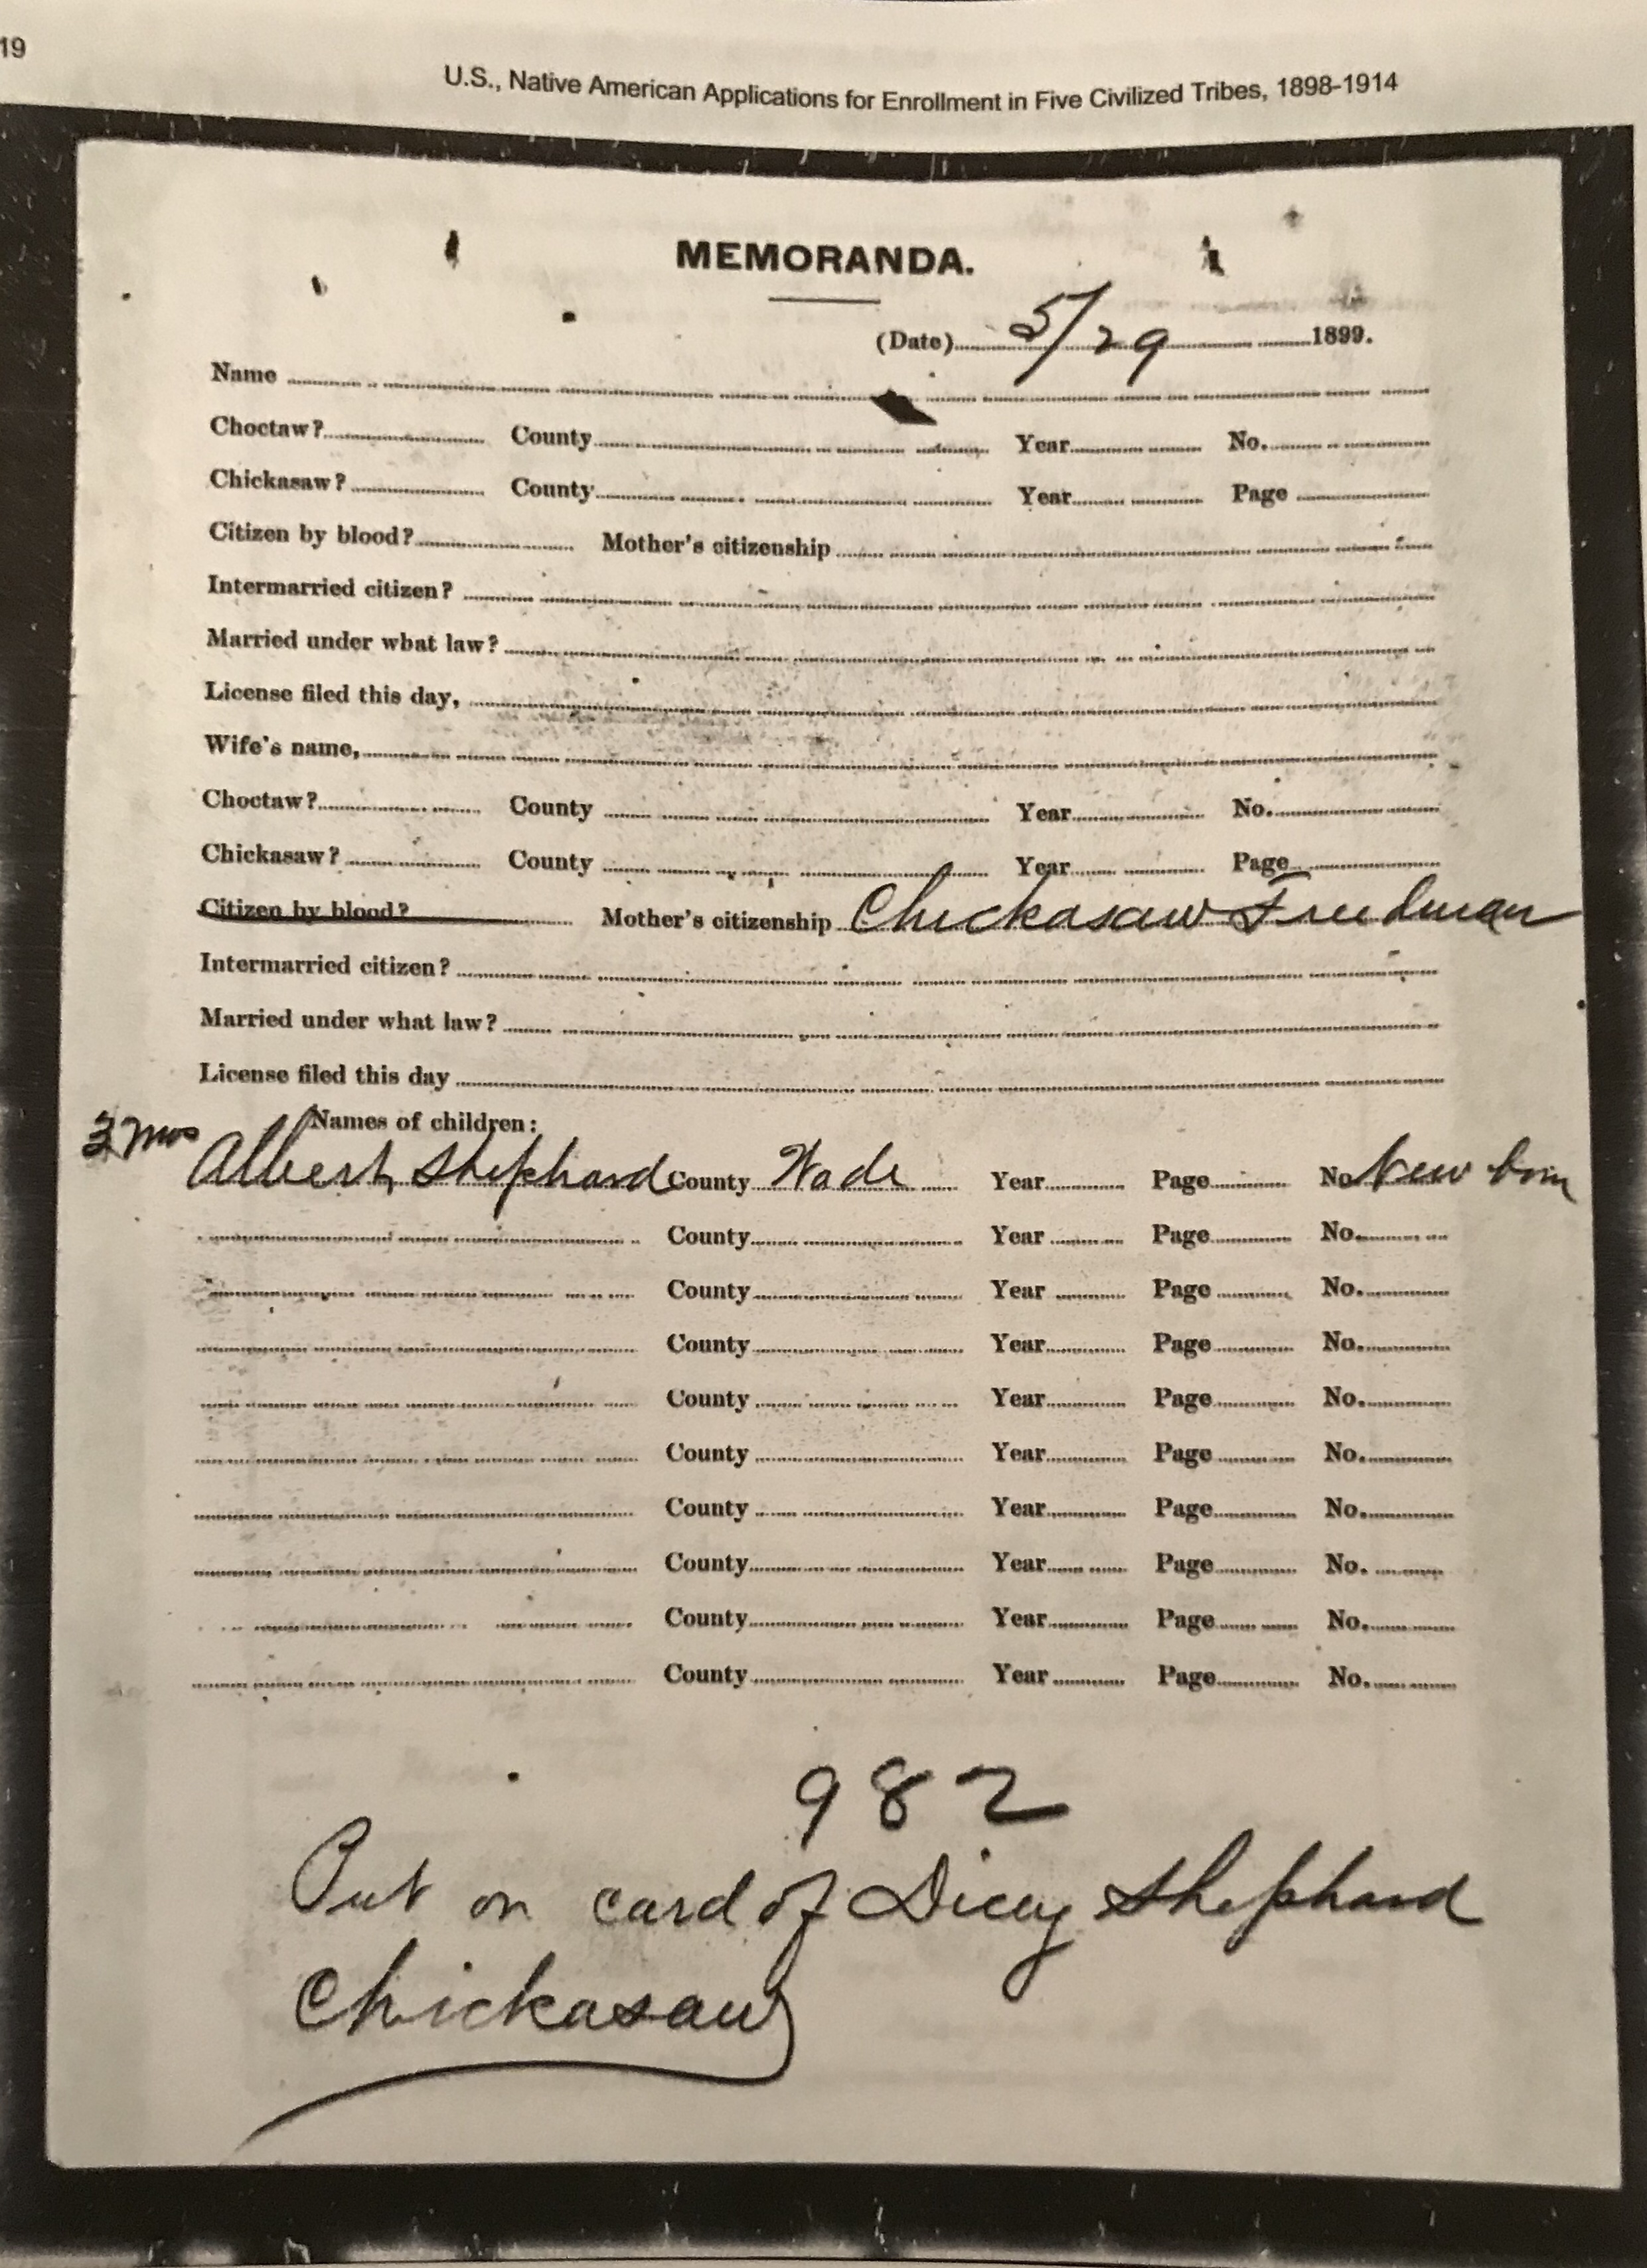 19
U.S., Native American Applications for Enrollment in Five Civilized Tribes, 1898-1914
MEMORANDA.
(Date) 5/29 1899.
Name
Choctaw? County Year No.
Chickasaw? County Year Page
Citizen by blood? Mother's citizenship
Intermarried citizen?
Married under what law?
License filed this day,
Wife's name,
Choctaw? County Year No.
Chickasaw? County Year Page
Citizen by blood? Mother's citizenship Chickasaw Freedman
Intermarried citizen?
Married under what law?
License filed this day
Names of children:
3 mos Albert Shephard County Wade Year Page No New born
County Year Page No.
County Year Page No.
County Year Page No.
County Year Page No.
County Year Page No.
County Year Page No.
County Year Page No.
County Year Page No.
County Year Page No.
982
Put on card of Dicey Shephard
Chickasaw